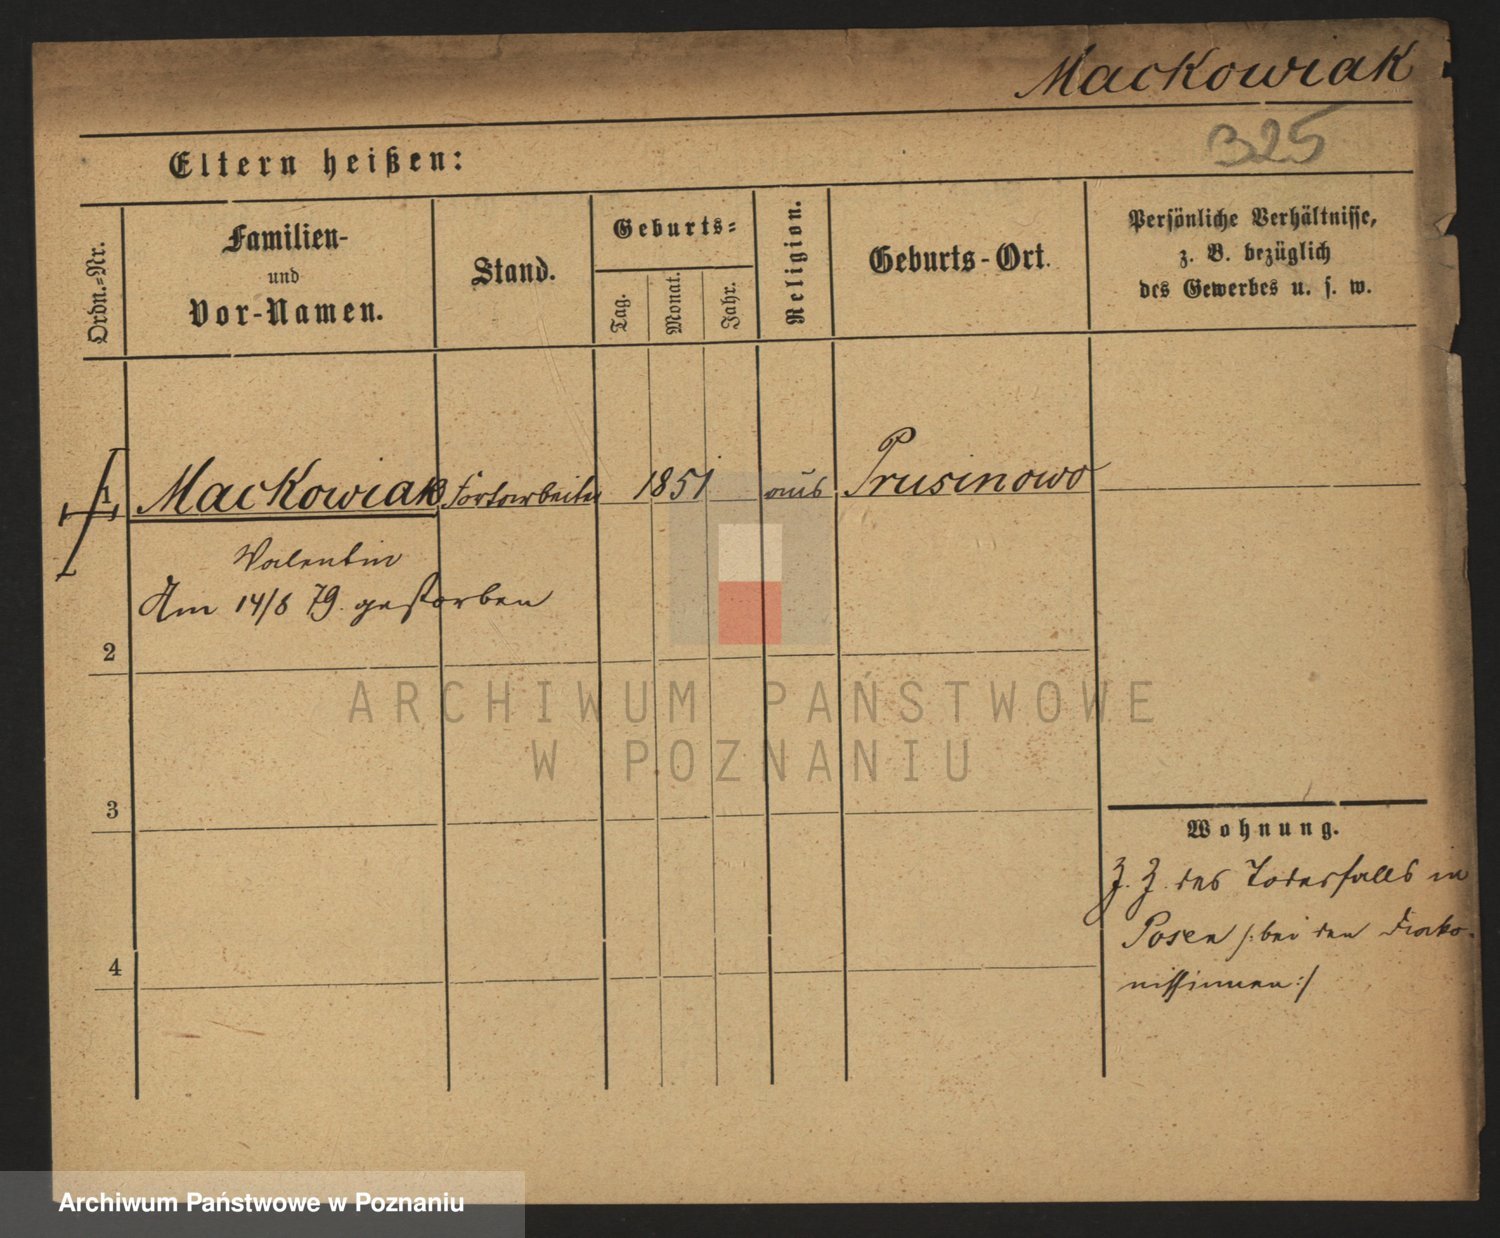 Mackowiak
325
Eltern heißen:
Ordn.-Nr.
Familien-
und
Vor-Namen.
Stand.
Geburts-
Tag.
Monat.
Jahr.
Religion.
Geburts-Ort.
Persönliche Verhältnisse,
z. B. bezüglich
des Gewerbes u. s. w.
1 Mackowiak Fortarbeiter 1851 aus Prusinowo
Valentin
Am 14/8 79. gestorben
2
ARCHIWUM PAŃSTWOWE
W POZNANIU
3
Wohnung.
Z. Z. des Todesfalls in
Posen /: bei den Diako-
nissinnen :/
4
Archiwum Państwowe w Poznaniu